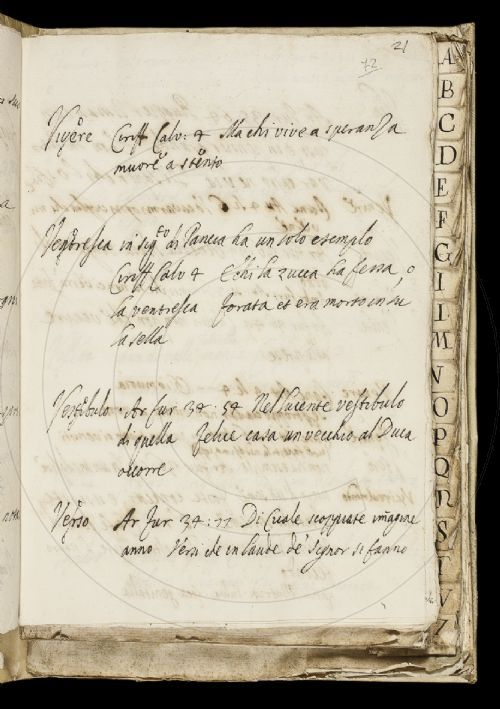 21
72
Vivere Ciriff Calv: 4 Ma chi vive a speranza
muore a stento
Ventresca in sig.to di Pancia ha un solo esempio
Ciriff Calv 4 E chi la zucca ha fessa, o
la ventresca forata et era morto in su
la sella
Vestibulo · Ar fur 34: 54 Nel lucente vestibulo
di quella felice casa un vecchio al Duca
occorre
Verso Ar fur 34: 77 Di Cicale scoppiate imagine
anno Versi che in laude de' Signor si fanno
A
B
C
D
E
F
G
I
L
M
N
O
P
Q
R
S
T
V
Z